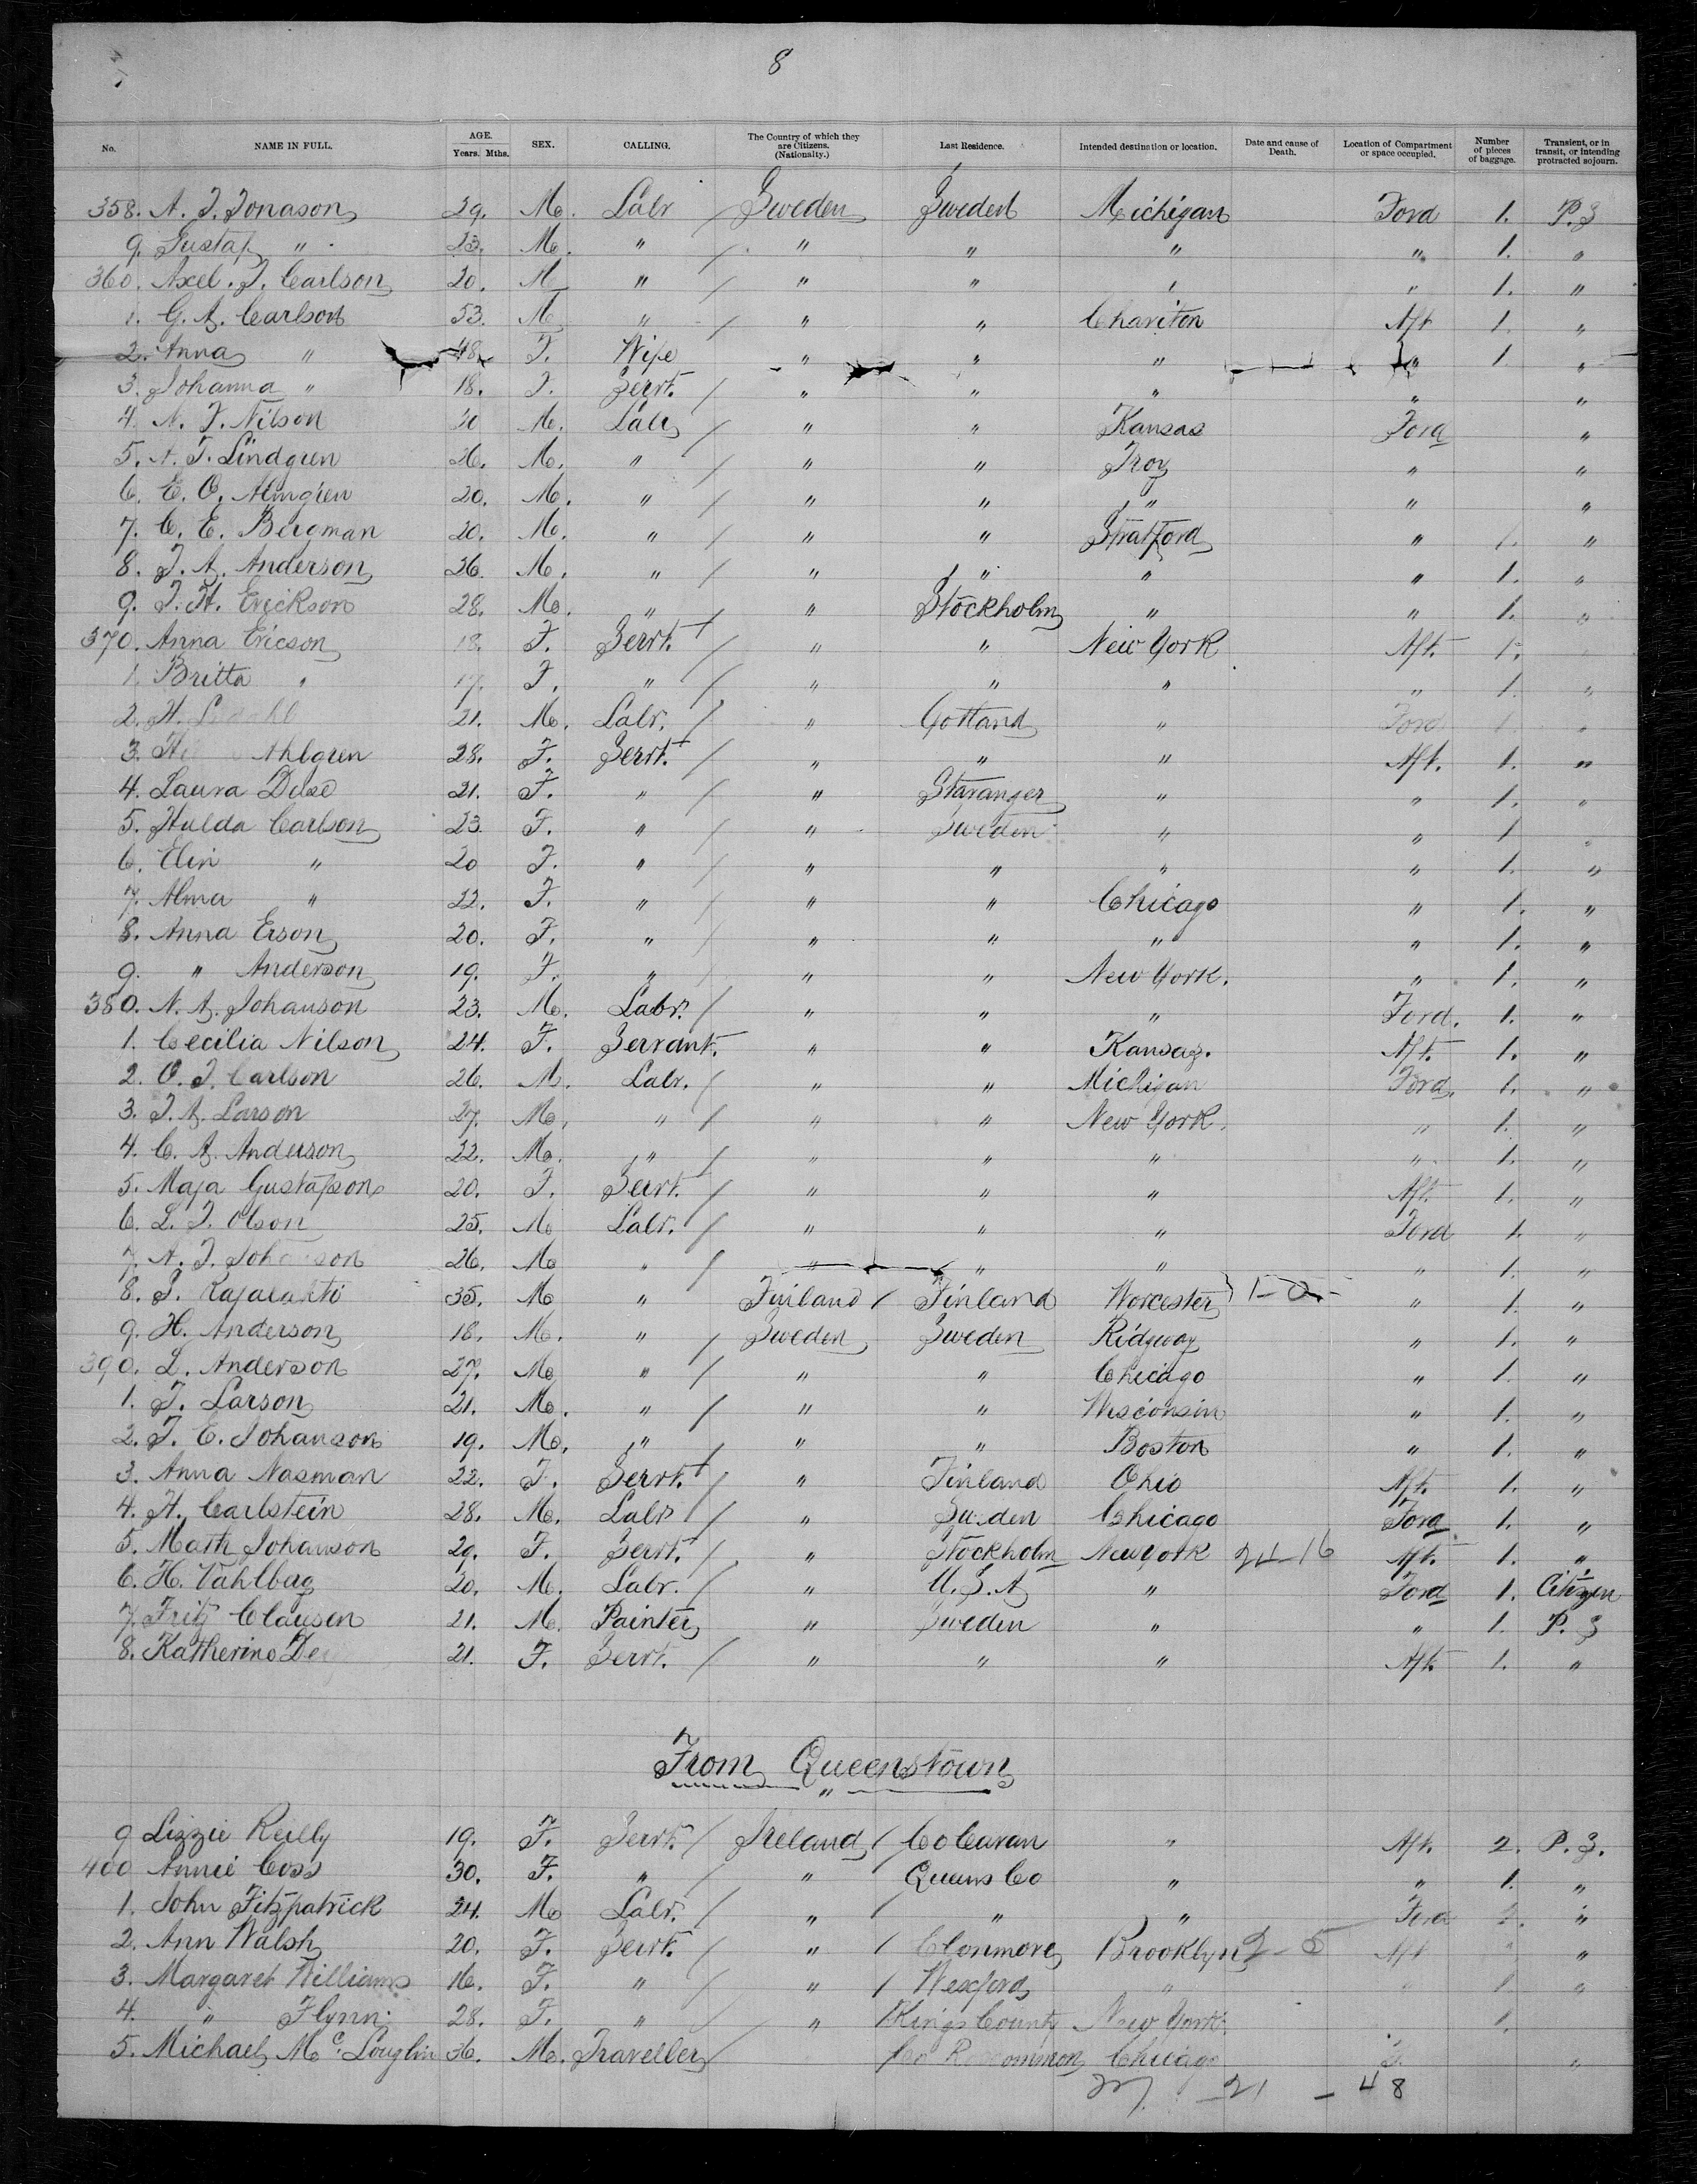 8
No. NAME IN FULL. AGE. Years. Mths. SEX. CALLING. The Country of which they are Citizens. (Nationalty.) Last Residence. Intended destination or location. Date and cause of Death. Location of Compartment or space occupied. Number of pieces of baggage. Transient, or in transit, or intending protracted sojourn.
358. A. J. Jonason 29. M. Labr Sweden Sweden Michigan Ford 1. P.S
9. Gustaf " 23. M. " " " " " 1. "
360. Axel. J. Carlson 20. M " " " " " 1. "
1. G. A. Carlson 53. M " " " Chariton Aft 1. "
2. Anna " 48. F. Wife " " " " 1. "
3. Johanna " 18. F. Servt. " " " " "
4. N. J. Nilson 20 M. Labr " " Kansas Ford "
5. A. F. Lindgren 26. M. " " " Troy " "
6. E. O. Almgren 20. M. " " " " " "
7. C. E. Bergman 20. M. " " " Stratford " 1. "
8. J. A. Anderson 36. M. " " " " " 1. "
9. J. H. Erickson 28. M. " " Stockholm " " 1. "
370. Anna Ericson 18. F. Servt. " " New York Aft. 1.
1. Britta " 17. F. " " " " " 1. "
2. H. 21. M. Labr. " Gotland " Ford 1. "
3. Ahlgren 28. F. Servt. " " " Aft. 1. "
4. Laura Duse 21. F. " " Stavanger " " 1. "
5. Hulda Carlson 23. F. " " Sweden " " 1 "
6. Elin " 20 F. " " " " " 1. "
7. Alma " 22. F. " " " Chicago " 1. "
8. Anna Erson 20. F. " " " " " 1. "
9. " Anderson 19. F. " " " New York. " 1. "
380. N. A. Johanson 23. M. Labr. " " " Ford. 1. "
1. Cecilia Nilson 24. F. Servant. " " Kansas. Aft. 1. "
2. O. J. Carlson 26. M. Labr. " " Michigan Ford. 1. "
3. J. A. Larson 27. M. " " " New York. " 1. "
4. C. A. Anderson 22. M. " " " " " 1. "
5. Maja Gustafson 20. F. Servt. " " " Aft. 1. "
6. L. J. Olson 25. M Labr. " " " Ford 1. "
7. A. J. Johanson 26. M " " " " " 1. "
8. J. Kajalahti 35. M " Finland Finland Worcester 1-0- " 1. "
9. H. Anderson 18. M. " Sweden Sweden Ridgway " 1. "
390. L. Anderson 27. M " " " Chicago " 1. "
1. J. Larson 21. M. " " " Wisconsin " 1. "
2. J. E. Johanson 19. M. " " " Boston " 1. "
3. Anna Nasman 22. F. Servt. " Finland Ohio Aft. 1. "
4. H. Carlstein 28. M. Labr " Sweden Chicago Ford 1. "
5. Math Johanson 29. F. Servt. " Stockholm New York 24-16 Aft. 1. "
6. H. Vahlberg 20. M. Labr. " U.S.A " Ford 1. Citizen
7. Fritz Clausen 21. M. Painter " Sweden " " 1. P.S
8. Katherine 21. F. Servt. " " " Aft. 1. "
From Queenstown
9 Lizzie Reilly 19. F. Servt. Ireland Co Cavan " Aft. 2. P.S.
400 Annie Coss 30. F. " " Queens Co " " 1. "
1. John Fitzpatrick 24. M Labr. " " " Ford "
2. Ann Walsh 20. F. Servt. " Clonmore Brooklyn 2-5 Aft "
3. Margaret Williams 16. F. " " Wexford " " 1 "
4. " Flynn 28. F. " " Kings County New York. 1.
5. Michael Mc Loughlin 36. M. Traveller Co Roscommon Chicago F. "
27 - 21 - 48